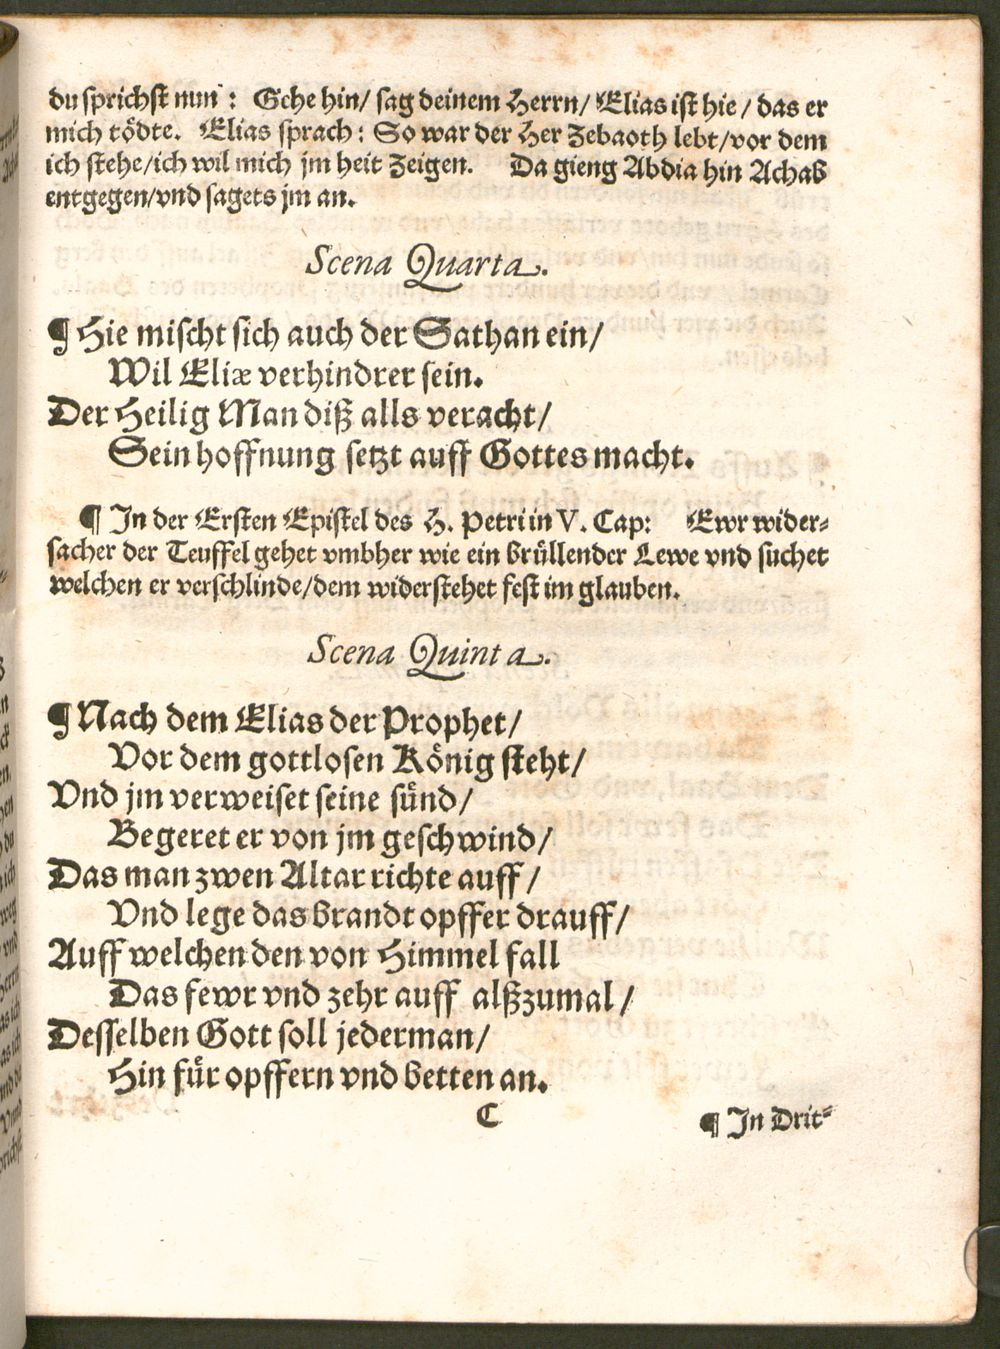 du sprichst nun : Gehe hin/ sag deinem Herrn/ Elias ist hie / das er
mich tödte. Elias sprach : So war der Her Zebaoth lebt/vor dem
ich stehe/ich wil mich jm heit zeigen. Da gieng Abdia hin Achab
entgegen/vnd sagets jm an.
Scena Quarta.
¶ Hie mischt sich auch der Sathan ein/
Wil Eliæ verhindrer sein.
Der Heilig Man diß alls veracht/
Sein hoffnung setzt auff Gottes macht.
¶ In der Ersten Epistel des H. Petri in V. Cap: Ewr wider⸗
sacher der Teuffel gehet vmbher wie ein brüllender Lewe vnd suchet
welchen er verschlinde/dem widerstehet fest im glauben.
Scena Quinta.
¶ Nach dem Elias der Prophet/
Vor dem gottlosen König steht/
Vnd jm verweiset seine sünd/
Begeret er von jm geschwind/
Das man zwen Altar richte auff/
Vnd lege das brandt opffer drauff/
Auff welchen den von Himmel fall
Das fewr vnd zehr auff alßzumal/
Desselben Gott soll jederman/
Hin für opffern vnd betten an.
C
¶ In Drit⸗